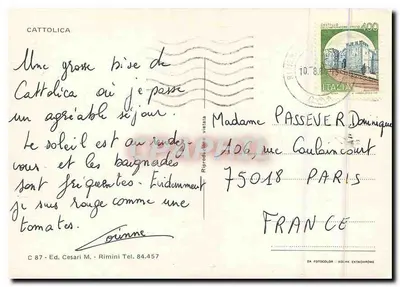 CATTOLICA
Une grosse bise de
Cattolica où je passe
un agréable séjour.
Le soleil est au rendez-
vous et les baignades
sont fréquentes. Evidemment
je suis rouge comme une
tomates.
Corinne
C 87 - Ed. Cesari M. - Rimini Tel. 84.457
Riproduzione vietata
400
ITALIA
Madame PASSEVER Dominique
10a, rue Coulaincourt
75018 PARIS
FRANCE